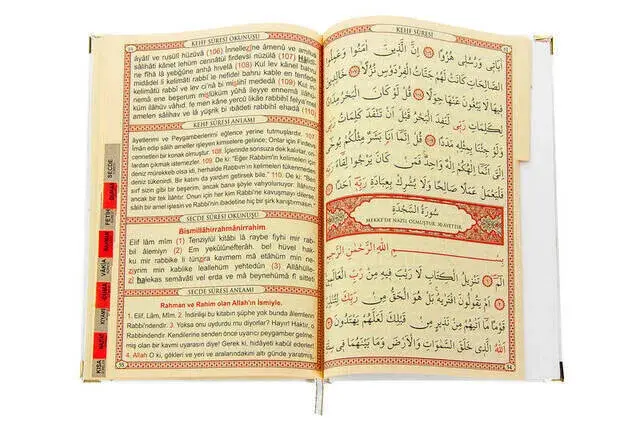 KEHF SÛRESİ OKUNUŞU
âyâtî ve rusulî hüzüvâ (106) İnnellezîne âmenû ve amilus
sâlihâti kânet lehüm cennâtül firdevsi nüzülâ (107) Hâlidîne
ne fîhâ lâ yebğûne anhâ hıvelâ (108) Kul lev kânel bahru
midâdel li kelimâti rabbî le nefidel bahru kable en tenfede
kelimâtü rabbî ve lev ci'nâ bi mislihî mededâ (109) Kul in-
nemâ ene beşerum mislüküm yûhâ ileyye ennemâ ilâhü-
küm ilâhüv vâhid. fe men kâne yercû likâe rabbihî felya'mel
amelen sâlihav ve lâ yüşrik bi ıbâdeti rabbihî ehadâ (110)
KEHF SÛRESİ ANLAMI
âyetlerimi ve Peygamberlerimi eğlence yerine tutmuşlardır. 107
İman edip sâlih ameller işleyen kimselere gelince; Onlar için Firdevs
cennetleri bir konak olmuştur. 108. İçlerinde sonsuza dek kalırlar, on-
lardan çıkmak istemezler. 109. De ki: "Eğer Rabbimin kelimeleri için
deniz mürekkep olsa idi, herhalde Rabbimin kelimeleri tükenmeden
deniz tükenirdi. Bir katını da yardım getirsek bile." 110. De ki: "Ben
sırf sizin gibi bir beşerim, ancak bana şöyle vahyolunuyor: İlâhınız
ancak bir tek ilâhtır. Onun için her kim Rabbi'ne kavuşmayı dilerse,
sâlih bir amel işlesin ve Rabbinin ibadetine hiç bir şirk karıştırmasın.
SECDE SÛRESİ OKUNUŞU
Bismillâhirrahmânirrahîm
Elif lâm mîm (1) Tenzîlül kitâbi lâ raybe fîhi mir rab-
bil âlemîyn (2) Em yekûlûnefterâh. bel hüvel hak-
ku mir rabbike li tünzira kavmem mâ etâhüm min ne-
ziyrim min kablike leallehüm yehtedûn (3) Allâhülle-
zî halekas semâvâti vel erda ve mâ beynehümâ fî sitteti
SECDE SÛRESİ ANLAMI
Rahman ve Rahim olan Allah'ın İsmiyle.
1. Elif, Lâm, Mîm. 2. İndirilişi bu kitabın şüphe yok bunda âlemlerin
Rabbi'ndendir. 3. Yoksa onu uydurdu mu diyorlar? Hayır! Haktır, o
Rabbindendir. Kendilerine senden önce uyarıcı peygamber gelme-
miş olan bir kavmi uyarasın diye! Gerek ki, hidâyeti kabul ederler!
4. Allah O ki, gökleri ve yeri ve aralarındaki altı günde yaratmış,
55
SECDE
FETİH
KIYAME
KISA
KEHF SÛRESİ
اٰيَاتٖي وَرُسُلٖي هُزُوًا ﴿١٠٦﴾ اِنَّ الَّذٖينَ اٰمَنُوا وَعَمِلُوا
الصَّالِحَاتِ كَانَتْ لَهُمْ جَنَّاتُ الْفِرْدَوْسِ نُزُلًا ﴿١٠٧﴾ خَالِدٖينَ
فٖيهَا لَا يَبْغُونَ عَنْهَا حِوَلًا ﴿١٠٨﴾ قُلْ لَوْ كَانَ الْبَحْرُ مِدَادًا
لِكَلِمَاتِ رَبّٖي لَنَفِدَ الْبَحْرُ قَبْلَ اَنْ تَنْفَدَ كَلِمَاتُ رَبّٖي
وَلَوْ جِئْنَا بِمِثْلِهٖ مَدَدًا ﴿١٠٩﴾ قُلْ اِنَّمَٓا اَنَا بَشَرٌ مِثْلُكُمْ يُوحٰٓى
اِلَيَّ اَنَّمَٓا اِلٰهُكُمْ اِلٰهٌ وَاحِدٌ فَمَنْ كَانَ يَرْجُوا لِقَٓاءَ رَبِّهٖ
فَلْيَعْمَلْ عَمَلًا صَالِحًا وَلَا يُشْرِكْ بِعِبَادَةِ رَبِّهٖٓ اَحَدًا ﴿١١٠﴾
سُورَةُ السَّجْدَةِ
MEKKE'DE NAZİL OLMUŞTUR. 30 AYETTİR.
بِسْمِ اللّٰهِ الرَّحْمٰنِ الرَّحٖيمِ
الٓمٓ ﴿١﴾ تَنْزٖيلُ الْكِتَابِ لَا رَيْبَ فٖيهِ مِنْ رَبِّ الْعَالَمٖينَ ﴿٢﴾
اَمْ يَقُولُونَ افْتَرٰيهُ بَلْ هُوَ الْحَقُّ مِنْ رَبِّكَ لِتُنْذِرَ
قَوْمًا مَٓا اَتٰيهُمْ مِنْ نَذٖيرٍ مِنْ قَبْلِكَ لَعَلَّهُمْ يَهْتَدُونَ ﴿٣﴾
اَللّٰهُ الَّذٖي خَلَقَ السَّمٰوَاتِ وَالْاَرْضَ وَمَا بَيْنَهُمَا فٖي
54